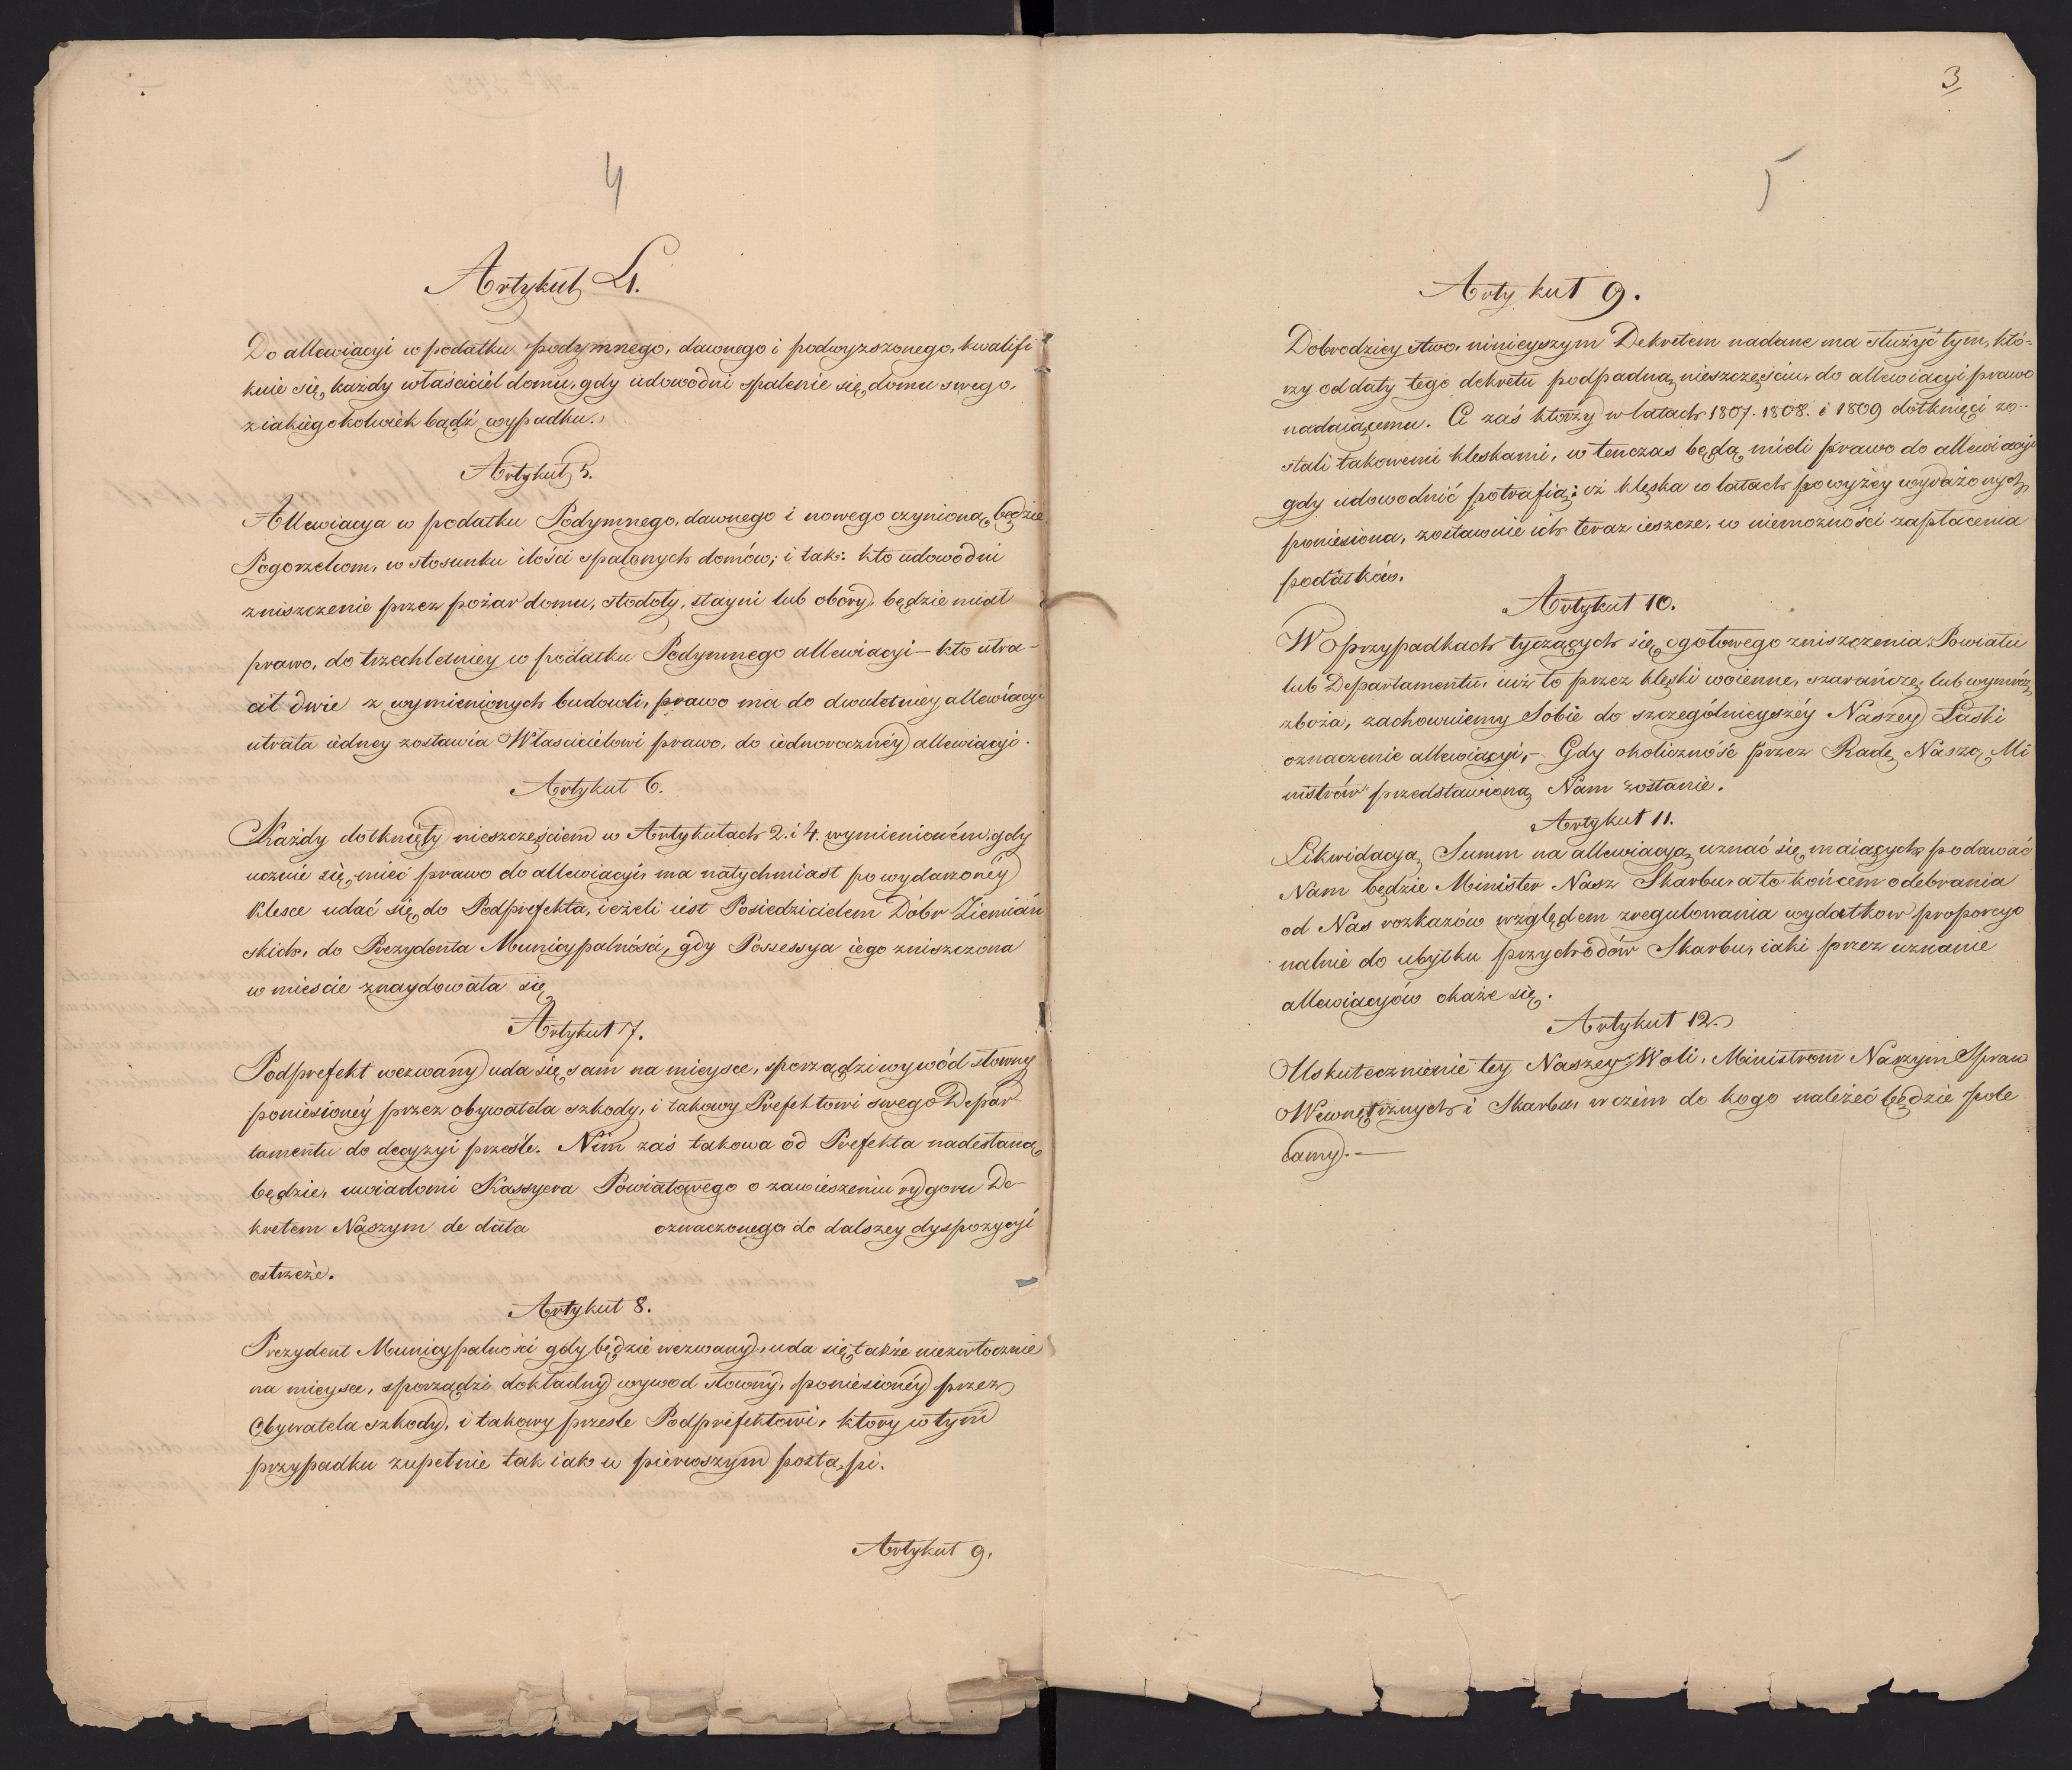 4
Artykuł 4.
Do allewiacyi w podatku podymnego, dawnego i podwyzszonego, kwalifi
kuie się, każdy właściciel domu, gdy udowodni spalenie się domu swego,
z iakiegokolwiek bądź wypadku.
Artykuł 5.
Allewiacya w podatku Podymnego, dawnego i nowego czyniona będzie
Pogorzelcom, w stosunku ilości spalonych domów; i tak: kto udowodni
zniszczenie przez pożar domu, stodoły, stayni lub obory, będzie miał
prawo, do trzechletniey w podatku Podymnego allewiacyi – kto utra-
cił dwie z wymienionych budowli, prawo ma do dwuletniey allewiacyi
utrata iedney zostawia Włascicielowi prawo, do iednoroczney allewiacyi.
Artykuł 6.
Każdy dotknięty nieszczęściem w Artykułach 2. i 4. wymienioném, gdy
uczuie się mieć prawo do allewiacyi, ma natychmiast po wydarzoney
klesce udać się do Podprefekta, ieżeli iest Posiedzicielem Dóbr Ziemiań
skich, do Prezydenta Municypalności, gdy Possessya iego zniszczona
w mieście znaydowała się
Artykuł 7.
Podprefekt wezwany uda się sam na mieysce, sporządzi wywód słowny
poniesioney przez obywatela szkody, i takowy Prefektowi swego Depar
tamentu do decyzyi prześle. Nim zaś takowa od Prefekta nadesłaną
będzie, uwiadomi Kassyera Powiatowego o zawieszeniu rygoru De-
kretem Naszym de data oznaczonego do dalszey dyspozycyi
ostrzeże.
Artykuł 8.
Prezydent Municypalności gdy będzie wezwany, uda się także niezwłocznie
na mieysce, sporządzi dokładny wywod słowny, poniesioney przez
Obywatela szkody, i takowy prześle Podprefektowi, ktory w tym
przypadku zupełnie tak iak w pierwszym postąpi.
Artykuł 9.
3
5
Artykuł 9.
Dobrodzieystwo, ninieyszym Dekretem nadane ma służyć tym, któ-
rzy od daty tego dekretu podpadną nieszczęściu, do allewiacyi prawo
nadaiącemu. Ci zaś ktorzy w latach 1807. 1808. i 1809 dotknięci zo-
stali takowemi klęskami, w tenczas będą mieli prawo do allewiacyi
gdy udowodnić potrafią: iż klęska w latach powyżey wyrażonych
poniesiona, zostawuie ich teraz ieszcze, w niemożności zapłacenia
podatków.
Artykuł 10.
W przypadkach tyczących się ogołowego zniszczenia Powiatu
lub Departamentu, iuż to przez klęski woienne, szarańczę lub wymróz
zboża, zachowuiemy Sobie do szczególnieyszéy Naszey Łaski
oznaczenie allewiacyi, – Gdy okoliczność przez Radę Naszą Mi
nistrów przedstawioną Nam zostanie.
Artykuł 11.
Likwidacyą Summ na allewiacyą uznać się maiących podawać
Nam będzie Minister Nasz Skarbu, a to końcem odebrania
od Nas rozkazów względem zregulowania wydatkow proporcyo
nalnie do ubytku przychodów Skarbu, iaki przez uznanie
allewiacyów okaże się.
Artykuł 12.
Uskutecznienie tey Naszey Woli, Ministrom Naszym Spraw
Wewnętrznych i Skarbu, w czém do kogo należeć będzie pole
camy. –